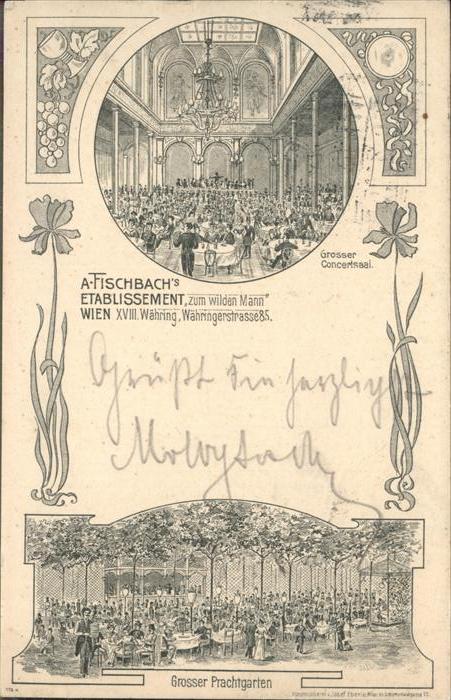 Grosser
Concertsaal.
A. FISCHBACH's
ETABLISSEMENT „zum wilden Mann"
WIEN XVIII. Währing, Währingerstrasse 85.
Grüßt Sie herzlichst
Grosser Prachtgarten